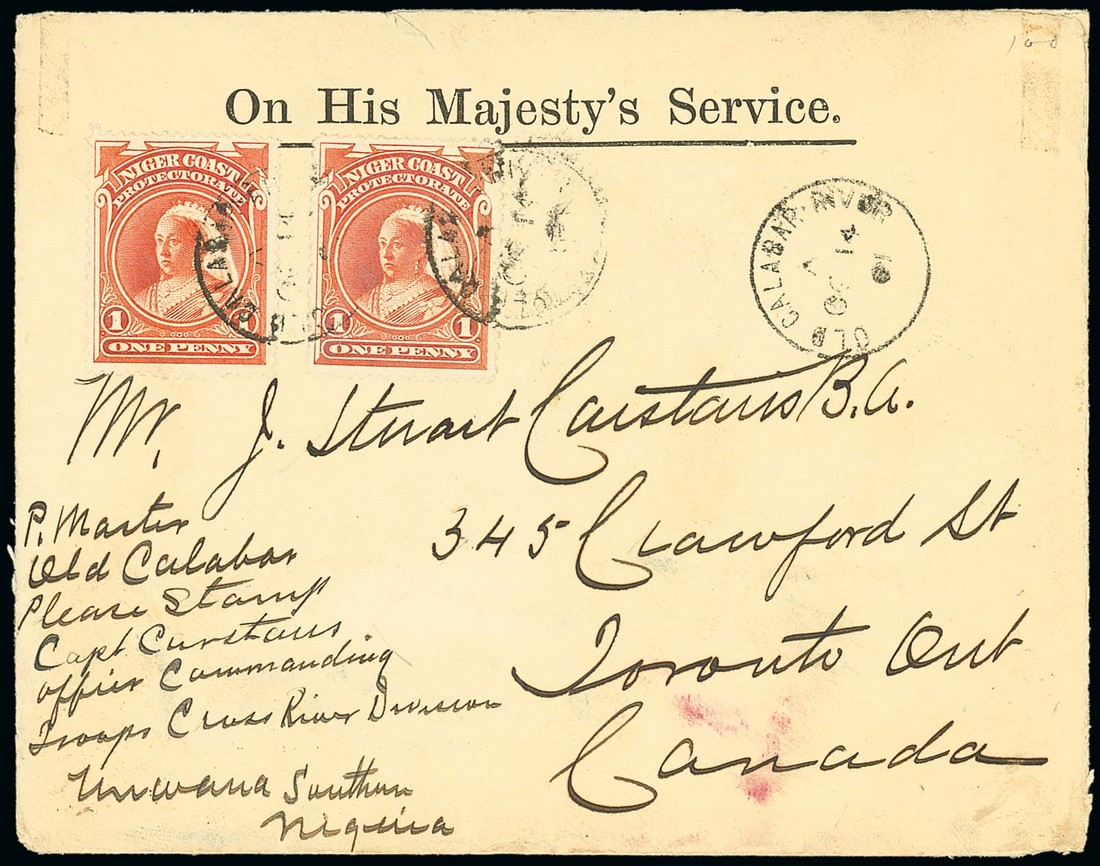 100
On His Majesty's Service.
NIGER COAST
PROTECTORATE
1 1
ONE PENNY
NIGER COAST
PROTECTORATE
1 1
ONE PENNY
OLD CALABAR RIVER
A
OC 14
Mr. J. Stuart Carstairs B.A.
345 Crawford St
Toronto Ont
Canada
P. Master
Old Calabar
Please Stamp
Capt Carstairs
Officer Commanding
Troops Cross River Division
Unwana Southern
Nigeria